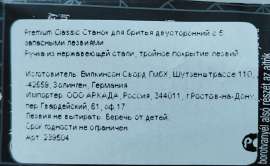 Premium Classic Станок для бритья двусторонний с 5
запасными лезвиями
Ручка из нержавеющей стали, тройное покрытие лезвий
Изготовитель: Вилкинсон Сворд ГмбХ, Шутценштрассе 110,
-42659, Золинген, Германия
Импортер: ООО АРКАДА, Россия, 344011, г.Ростов-на-Дону
пер.Гвардейский, 61, оф.17
Лезвия не вытирать. Беречь от детей.
Срок годности не ограничен
Арт. 239504